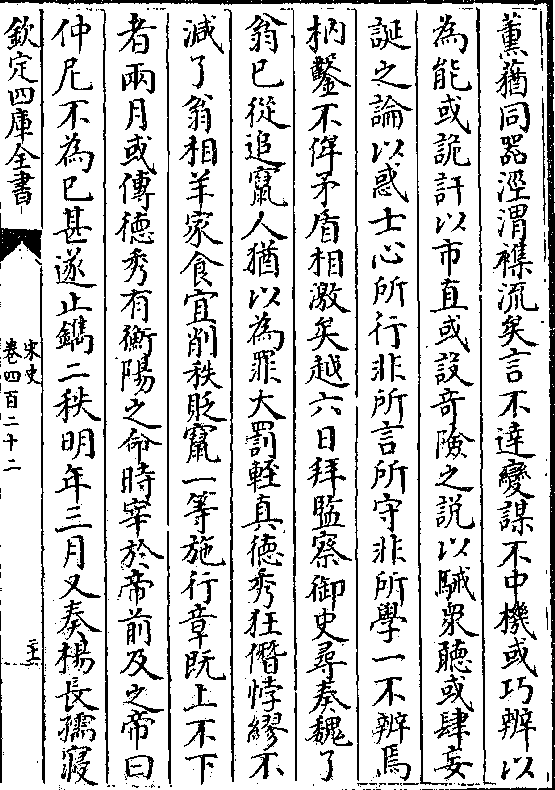 薰蕕同器涇渭襍流矣言不達變謀不中機或巧辨以
為能或詭訐以市直或設竒險之説以駴衆聽或肆妄
誕之論以惑士心所行非所言所守非所學一不辨焉
枘鑿不侔矛盾相激矣越六日拜監察御史尋奏魏了
翁已從追竄人猶以為罪大罰輕真德秀狂僭悖繆不
減了翁相羊家食宜削秩貶竄一等施行章既上不下
者兩月或傳德秀有衡陽之命時宰於帝前及之帝曰
仲尼不為已甚遂止鐫二秩明年三月又奏楊長孺寢
欽定四庫全書
宋史
卷四百二十二